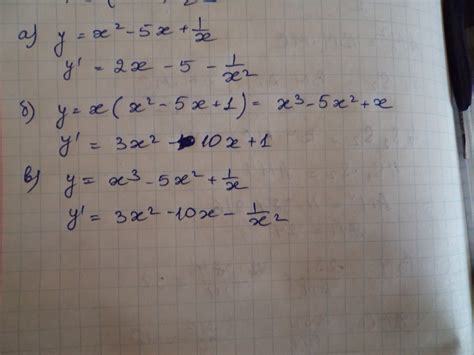 а) y = x² - 5x + 1/x
y' = 2x - 5 - 1/x²
б) y = x(x² - 5x + 1) = x³ - 5x² + x
y' = 3x² - 10x + 1
в) y = x³ - 5x² + 1/x
y' = 3x² - 10x - 1/x²